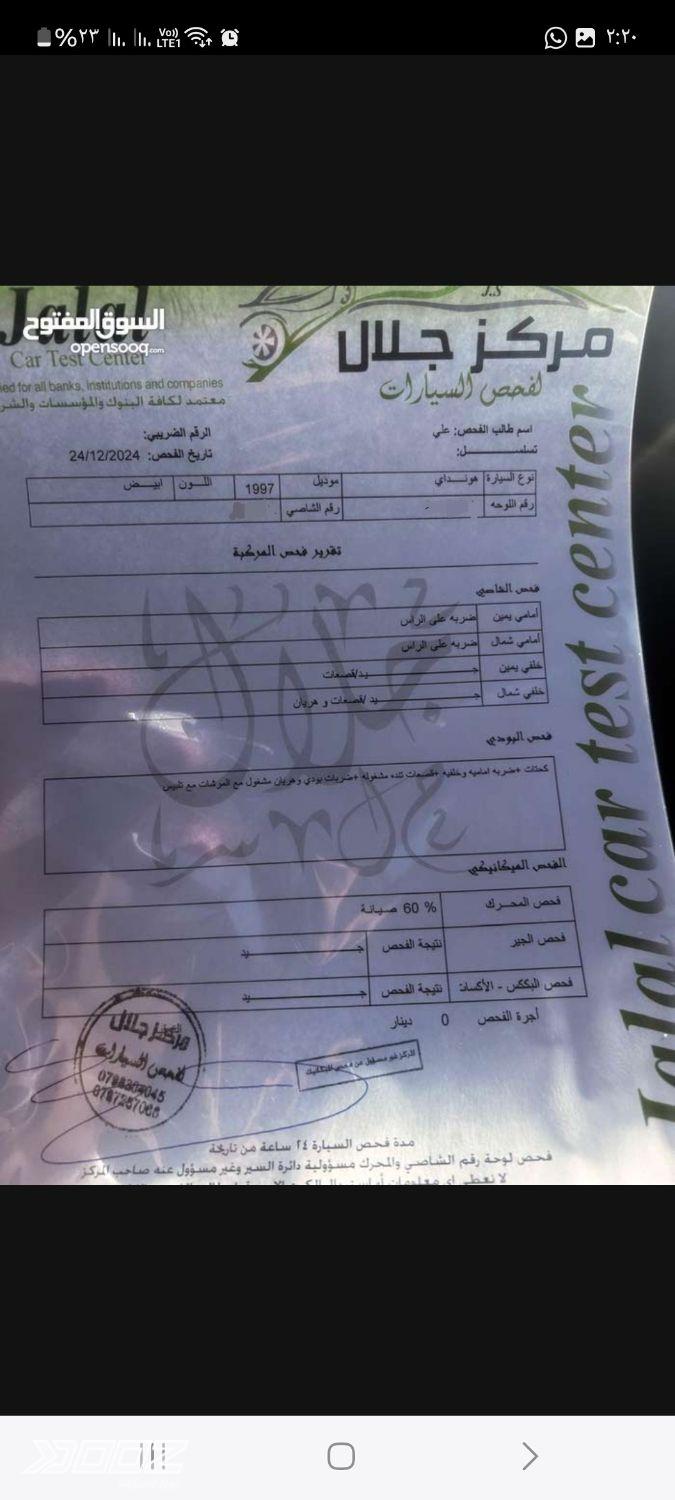 %٢٣
Vo))
LTE1
٢:٢٠
J.S
Jalal
السوق المفتوح
opensooq.com
Car Test Center
مركز جلال
لفحص السيارات
ed for all banks, institutions and companies
معتمد لكافة البنوك والمؤسسات والشر
اسم طالب الفحص: علي
الرقم الضريبي:
تسلســـل:
تاريخ الفحص: 24/12/2024
نوع السيارة هونـــداي موديل 1997 اللـــون ابيـــض
رقم اللوحه رقم الشاصي
تقرير فحص المركبة
فحص الشاصي
أمامي يمين ضربه على الراس
أمامي شمال ضربه على الراس
خلفي يمين جـــيد/قصعات
خلفي شمال جـــيد /قصعات و هريان
فحص البودي
كحتات +ضربه اماميه وخلفيه +قصعات تنده مشغوله +ضربات بودي وهريان مشغول مع المرشات مع تلبيس
الفحص الميكانيكي
فحص المحـرك 60 % صيـانة
فحص الجير نتيجة الفحص جـــيد
فحص البككس - الأكسات نتيجة الفحص جـــيد
أجرة الفحص 0 دينار
مركز جلال
لفحص السيارات
مدة فحص السيارة ٢٤ ساعة من تاريخة
فحص لوحة رقم الشاصي والمحرك مسؤولية دائرة السير وغير مسؤول عنه صاحب المركز
لا نعطي اي معلومات
جلال
Jalal car test center